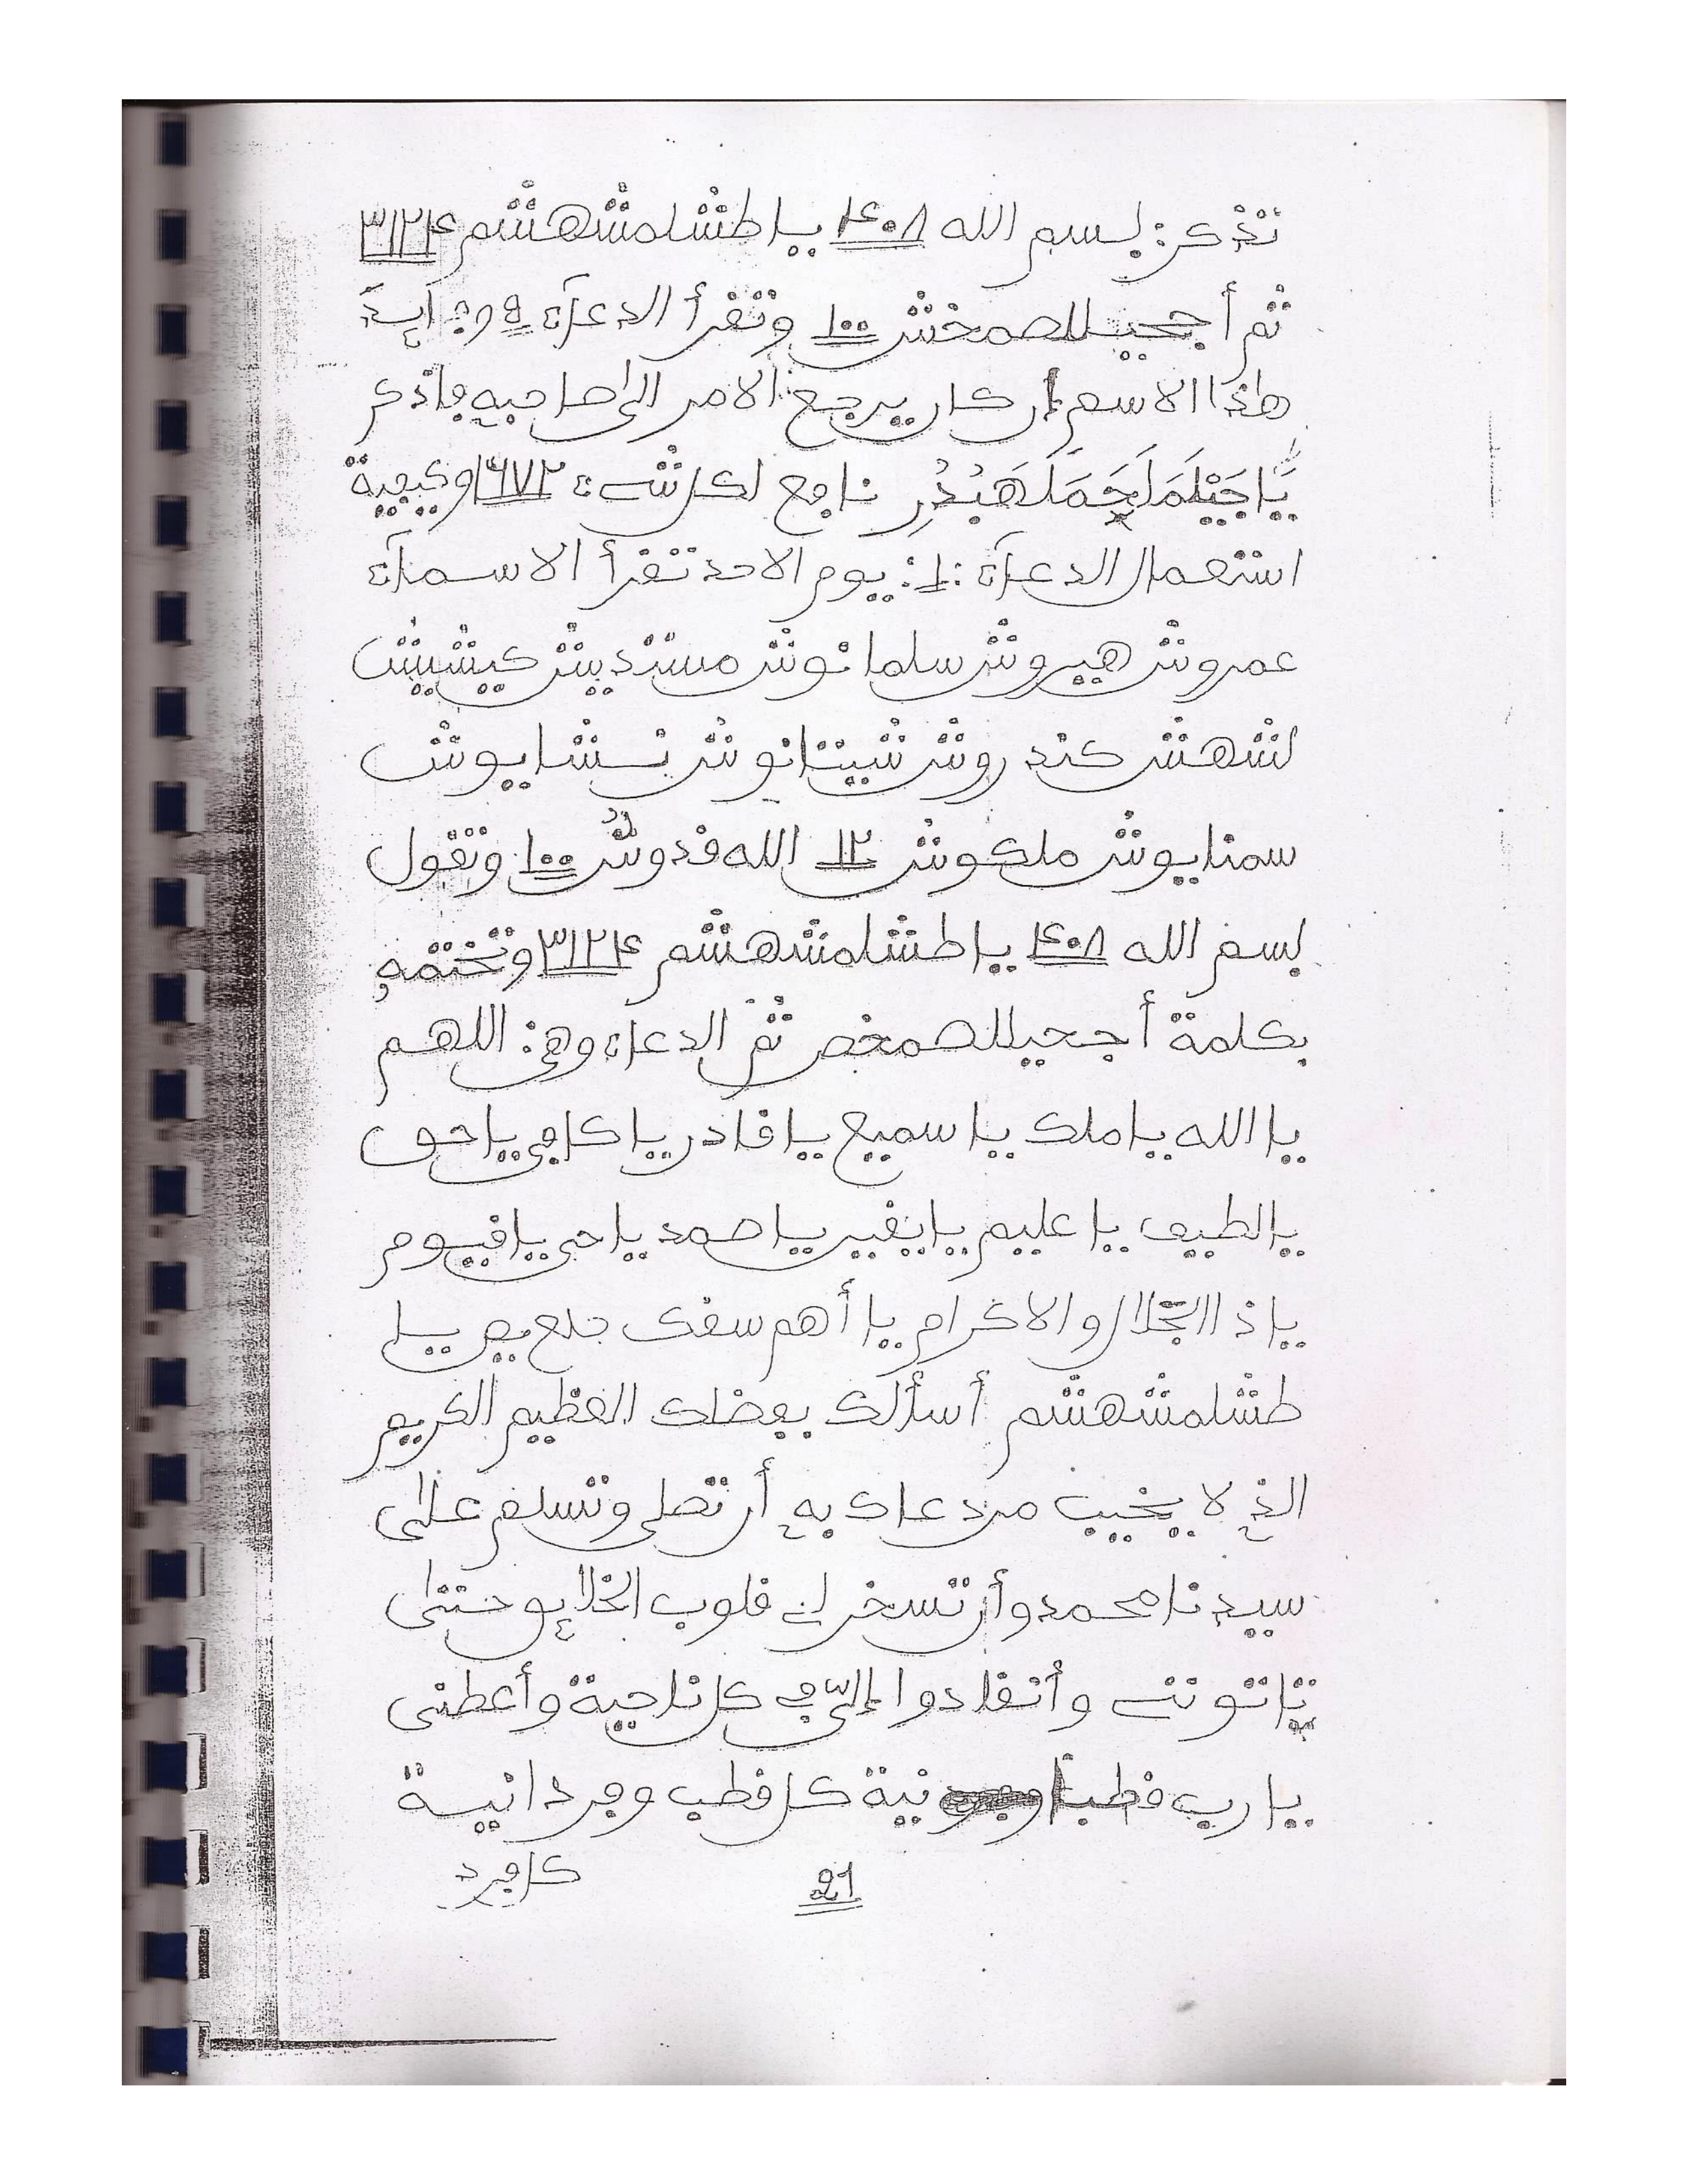 تذكر: بسم الله ٤٠٨ يا طشلمشهشم ٣١٢٤
ثم أجحيللصمخش ١٠٠ وتقرأ الدعاء
هاذا الاسم إن كان يرجع الامر إلى صاحبه فاذكر
نافع لكل شيء ١٦٧٢ وكيفية
استعمال الدعاء: 1: يوم الاحد تقرأ الاسماء
عمروش هيروش سلمانوش مستديش كيشيش
لشهش كندروش شيتانوش نسشايوش
سمنايوش ملكوش ١٢ الله قدوش ١٠٠ وتقول
بسم الله ٤٠٨ يا طشلمشهشم ٣١٢٤ وتختمه
بكلمة أجحيللصمخص ثم الدعاء وهي: اللهم
يا الله يا ملك يا سميع يا قادر يا كافي يا حق
يا لطيف يا عليم يا صمد يا حي يا قيوم
يا ذا الجلال والاكرام يا أهم سقك حلع يص يا
طشلمشهشم أسألك بفضلك العظيم الكريم
الذي لا يخيب من دعاك به أن تصلي وتسلم على
سيدنا محمد وأن تسخر لي قلوب الخلايق حتى
ياتوني وأنقادوا إليّ في كل ناحية وأعطني
يا رب قطبا نية كل قطب وفردانية
كل فرد
21